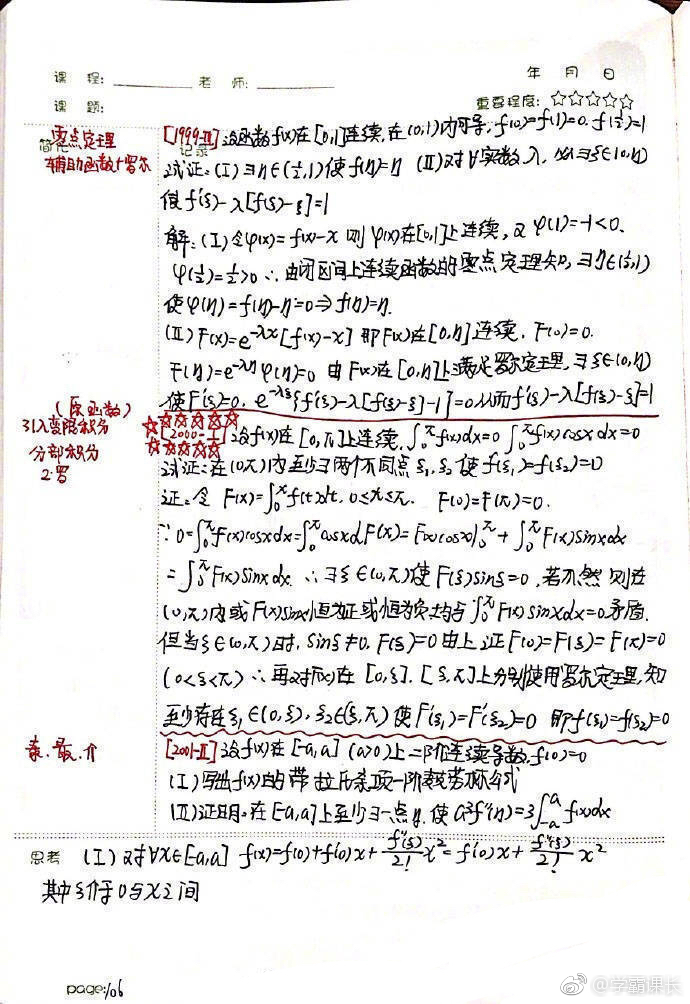 课 程: 老 师: 年 月 日
课 题: 重要程度: ☆☆☆☆☆
零点定理
辅助函数+罗尔
记录
[1999-Ⅲ] 设函数f(x)在[0,1]连续,在(0,1)内可导,f(0)=f(1)=0. f(½)=1
试证:(Ⅰ)∃η∈(½,1)使f(η)=η (Ⅱ)对∀实数λ,必∃ξ∈(0,η)
使f'(ξ)-λ[f(ξ)-ξ]=1
解:(Ⅰ)令φ(x)=f(x)-x 则φ(x)在[0,1]上连续,又φ(1)=-1<0.
φ(½)=½>0 ∴由闭区间上连续函数的零点定理知,∃η∈(½,1)
使φ(η)=f(η)-η=0⇒f(η)=η.
(Ⅱ)F(x)=e^{-λx}[f(x)-x] 即F(x)在[0,η]连续. F(0)=0.
F(η)=e^{-λη}φ(η)=0 由F(x)在[0,η]上满足罗尔定理,∃ξ∈(0,η)
使F'(ξ)=0. e^{-λξ}{f'(ξ)-λ[f(ξ)-ξ]-1}=0从而f'(ξ)-λ[f(ξ)-ξ]=1
(原函数)
引入变限积分
分部积分
2罗
☆☆☆☆☆
[2000-Ⅰ] 设f(x)在[0,π]上连续,∫₀^π f(x)dx=0 ∫₀^π f(x)cosxdx=0
☆☆☆☆☆
试证:在(0,π)内至少∃两个不同点ξ₁,ξ₂使f(ξ₁)=f(ξ₂)=0
证:令 F(x)=∫₀^x f(t)dt, 0≤x≤π. F(0)=F(π)=0.
∵0=∫₀^π f(x)cosxdx=∫₀^π cosxdF(x)=F(x)cosx|₀^π+∫₀^π F(x)sinxdx
=∫₀^π F(x)sinxdx. ∴∃ξ∈(0,π)使F(ξ)sinξ=0,若不然 则在
(0,π)内或F(x)sinx恒为正或恒为负,均与∫₀^π F(x)sinxdx=0矛盾.
但当ξ∈(0,π)时,sinξ≠0.F(ξ)=0由上证F(0)=F(ξ)=F(π)=0
(0<ξ<π)∴再对F(x)在[0,ξ].[ξ,π]上分别使用罗尔定理,知
至少存在ξ₁∈(0,ξ),ξ₂∈(ξ,π)使F'(ξ₁)=F'(ξ₂)=0 即f(ξ₁)=f(ξ₂)=0
泰、最、介
[2001-Ⅱ] 设f(x)在[-a,a](a>0)上二阶连续导数,f(0)=0
(Ⅰ)写出f(x)的带拉氏余项一阶麦劳林公式
(Ⅱ)证明:在[-a,a]上至少∃一点η.使a³f''(η)=3∫₋ₐ^a f(x)dx
思考 (Ⅰ)对∀x∈[-a,a] f(x)=f(0)+f'(0)x+f''(ξ)/2! x²=f'(0)x+f''(ξ)/2! x²
其中ξ介于0与x之间
page:106
@学霸课长